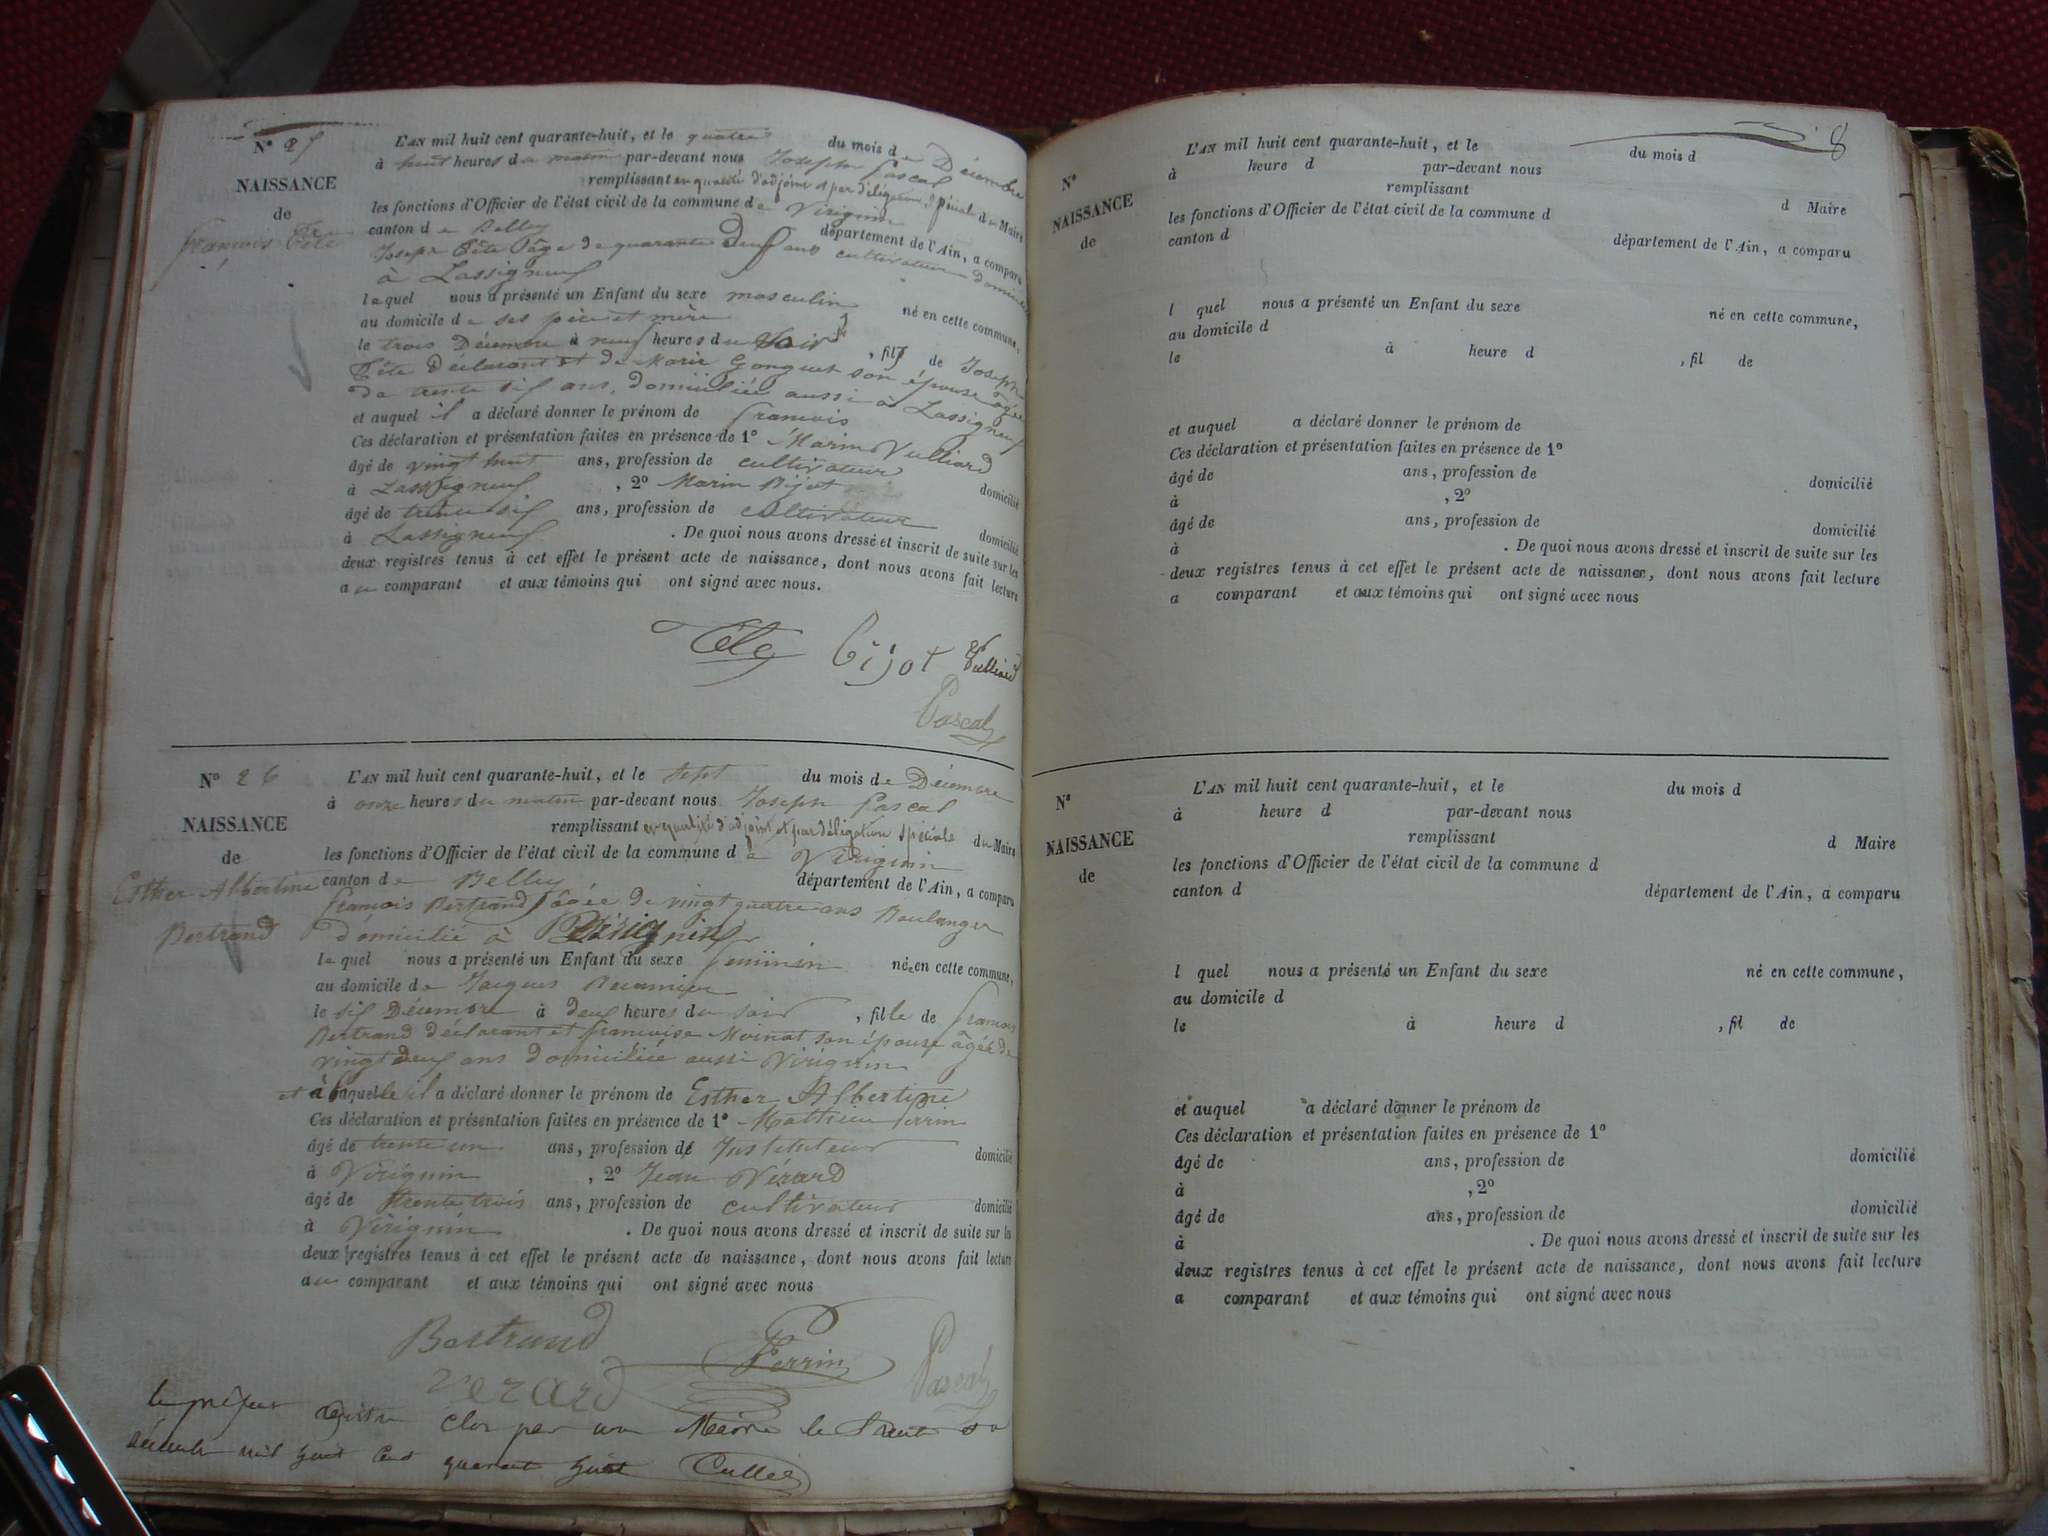 N° 25
NAISSANCE
de
François Tête
L'AN mil huit cent quarante-huit, et le quatre du mois de Décembre
à huit heures du matin par-devant nous Joseph Pascal
remplissant en qualité d'adjoint et par délégation spéciale du Maire
les fonctions d'Officier de l'état civil de la commune de Virignin
canton de Belley département de l'Ain, a comparu
Joseph Tête âgé de quarante deux ans cultivateur domicilié
à Lassigneux
lequel nous a présenté un Enfant du sexe masculin né en cette commune,
au domicile de ses père et mère
le trois Décembre à neuf heures du soir, fils de Joseph
Tête Déclarant et de Marie Gonguet son épouse âgée
de trente six ans, domiciliée aussi à Lassigneux
et auquel il a déclaré donner le prénom de François
Ces déclaration et présentation faites en présence de 1° Marin Vulliard
âgé de vingt huit ans, profession de cultivateur domicilié
à Lassigneux, 2° Marin Bijot
âgé de trente six ans, profession de cultivateur domicilié
à Lassigneux. De quoi nous avons dressé et inscrit de suite sur les
deux registres tenus à cet effet le présent acte de naissance, dont nous avons fait lecture
au comparant et aux témoins qui ont signé avec nous.
Tête Bijot Vulliard
Pascal
N° 26
NAISSANCE
de
Esther Albertine
Bertrand
L'AN mil huit cent quarante-huit, et le sept du mois de Décembre
à onze heures du matin par-devant nous Joseph Pascal
remplissant en qualité d'adjoint et par délégation spéciale du Maire
les fonctions d'Officier de l'état civil de la commune de Virignin
canton de Belley département de l'Ain, a comparu
François Bertrand âgée de vingt quatre ans Boulanger
domicilié à Virignin
lequel nous a présenté un Enfant du sexe féminin née en cette commune,
au domicile de Jacques
le six Décembre à deux heures du soir, fille de François
Bertrand déclarant et françoise Moinat son épouse âgée de
vingt deux ans domiciliée aussi Virignin
et à laquelle il a déclaré donner le prénom de Esther Albertine
Ces déclaration et présentation faites en présence de 1° Mathieu Perrin
âgé de trente un ans, profession de Instituteur domicilié
à Virignin, 2° Jean Vérard
âgé de trente trois ans, profession de cultivateur domicilié
à Virignin. De quoi nous avons dressé et inscrit de suite sur les
deux registres tenus à cet effet le présent acte de naissance, dont nous avons fait lecture
au comparant et aux témoins qui ont signé avec nous
Bertrand Perrin Pascal
Verard
le présent registre clos par nous Maire le trente un
décembre mil huit cent quarante huit
8
N°
NAISSANCE
de
L'AN mil huit cent quarante-huit, et le du mois d
à heure d par-devant nous
remplissant d Maire
les fonctions d'Officier de l'état civil de la commune d
canton d département de l'Ain, a comparu
l quel nous a présenté un Enfant du sexe né en cette commune,
au domicile d
le à heure d, fil de
et auquel a déclaré donner le prénom de
Ces déclaration et présentation faites en présence de 1°
âgé de ans, profession de domicilié
à, 2°
âgé de ans, profession de domicilié
à. De quoi nous avons dressé et inscrit de suite sur les
deux registres tenus à cet effet le présent acte de naissance, dont nous avons fait lecture
a comparant et aux témoins qui ont signé avec nous
N°
NAISSANCE
de
L'AN mil huit cent quarante-huit, et le du mois d
à heure d par-devant nous
remplissant d Maire
les fonctions d'Officier de l'état civil de la commune d
canton d département de l'Ain, a comparu
l quel nous a présenté un Enfant du sexe né en cette commune,
au domicile d
le à heure d, fil de
et auquel a déclaré donner le prénom de
Ces déclaration et présentation faites en présence de 1°
âgé de ans, profession de domicilié
à, 2°
âgé de ans, profession de domicilié
à. De quoi nous avons dressé et inscrit de suite sur les
deux registres tenus à cet effet le présent acte de naissance, dont nous avons fait lecture
a comparant et aux témoins qui ont signé avec nous